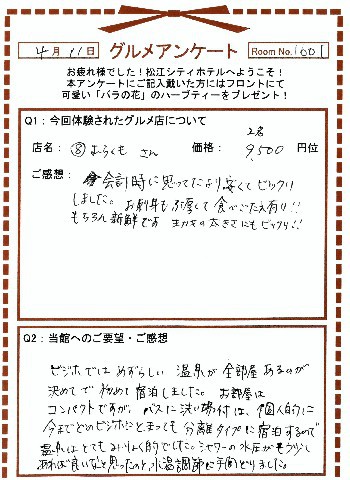 4月11日 グルメアンケート Room No.1001
お疲れ様でした！松江シティホテルへようこそ！
本アンケートにご記入戴いた方にはフロントにて
可愛い「バラの花」のハーブティーをプレゼント！
Q1：今回体験されたグルメ店について
2名
店名： ⑧ むらくも さん 価格： 9,500 円位
ご感想： 会計時に思ってたより安くてビックリ
しました。お刺身も厚くて食べごたえ有り!!
もちろん新鮮です 大きさにもビックリ!!
Q2：当館へのご要望・ご感想
ビジホではめずらしい 温泉が全部屋あるのが
決めてで初めて宿泊しました。お部屋は
コンパクトですが、バスに洗い場付は、個人的に
今までどのビジホにとまっても分離タイプに宿泊するので
温泉はとてもみりょく的でした。シャワーの水圧がもう少し
あれば良いなと思ったのと、水温調節に手間どりました。